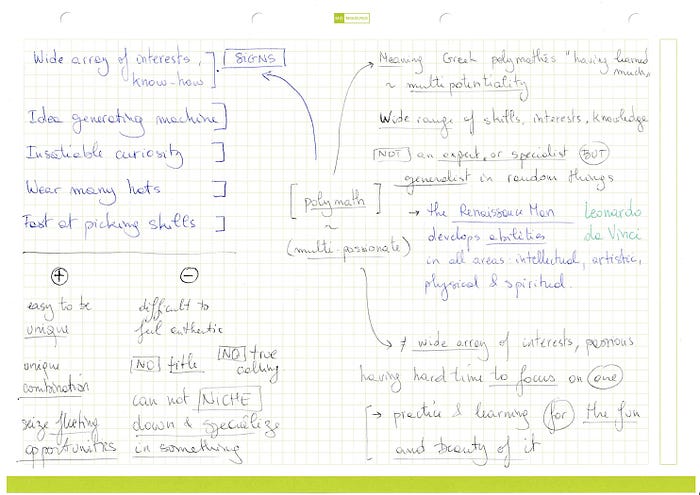 Wide array of interests,
know-how
SIGNS
Idea generating machine
Insatiable curiosity
Wear many hats
Fast at picking skills
+
easy to be
unique
unique
combination
seize fleeting
opportunities
-
difficult to
feel authentic
NO title
NO true
calling
can not NICHE
down & specialize
in something
[polymath]
~
(multi-passionate)
Meaning Greek polymathēs "having learned
much,
~ multipotentiality
Wide range of skills, interests, knowledge
NOT an expert, or specialist BUT
generalist in random things
→ the Renaissance Man
develops abilities
in all areas: intellectual, artistic,
physical & spiritual.
Leonardo
da Vinci
wide array of interests, passions
having hard time to focus on one
→ practice & learning for the fun
and beauty of it